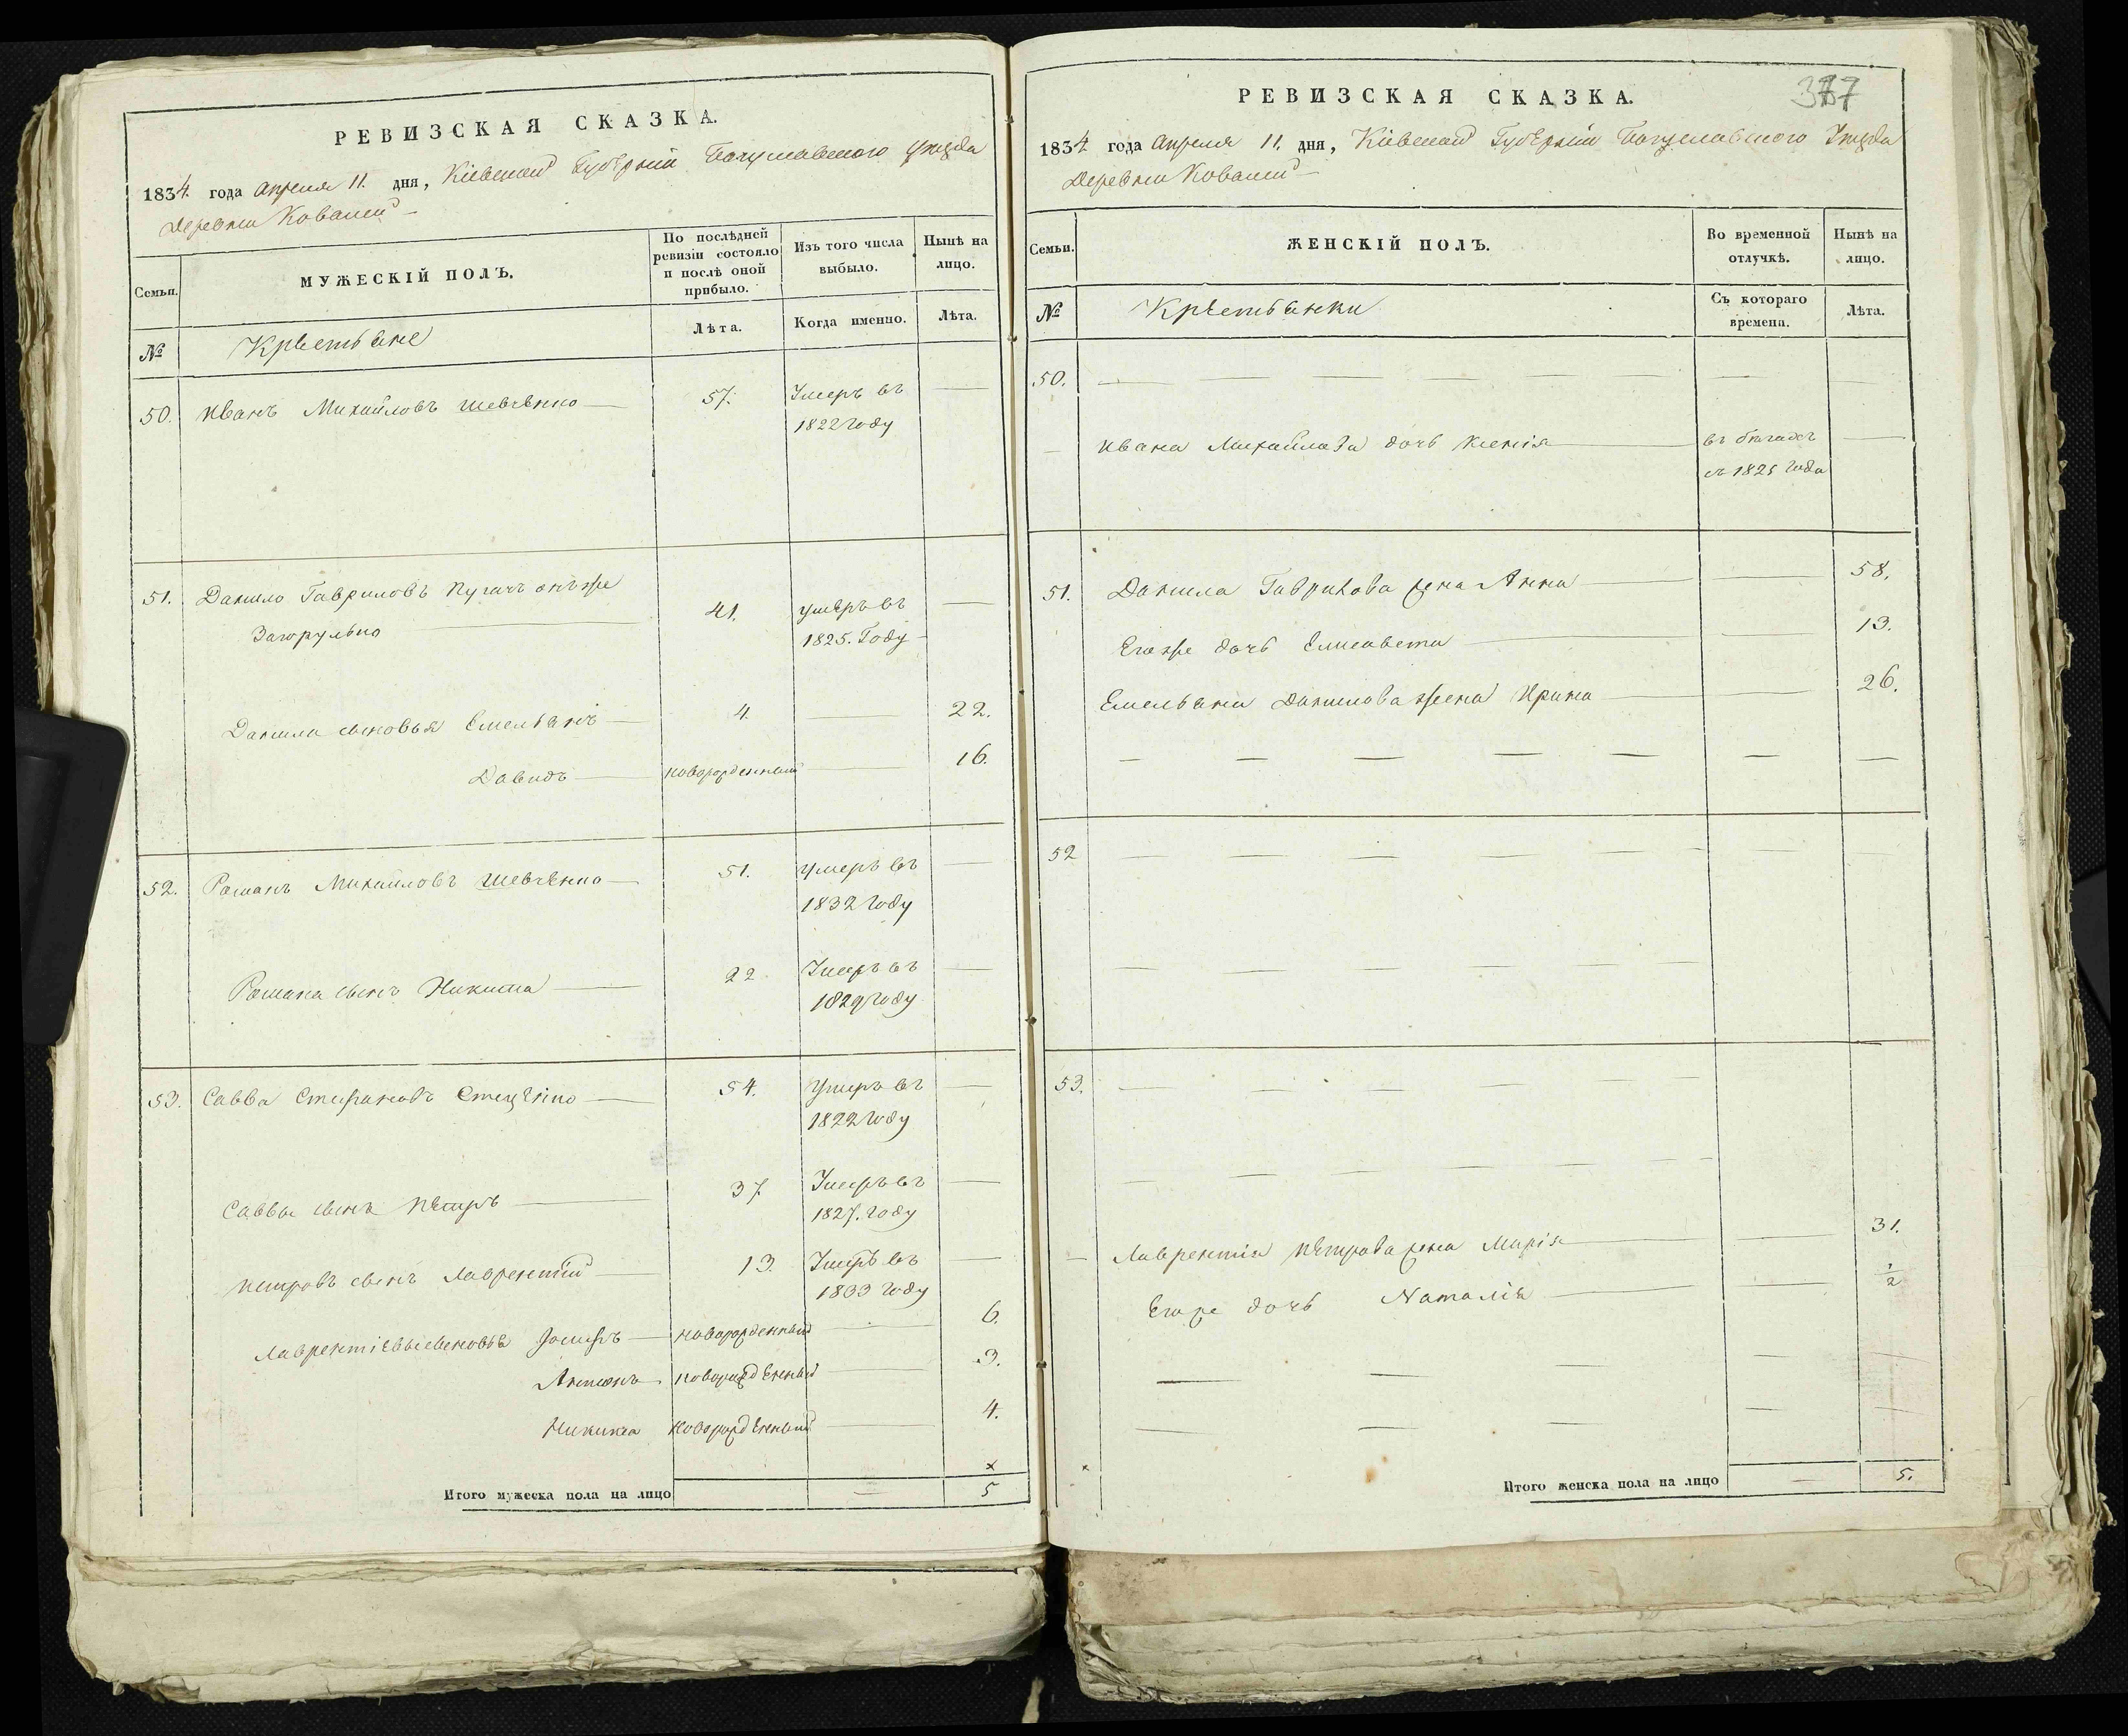 РЕВИЗСКАЯ СКАЗКА.
1834 года Апреля 11. дня, Кіевской Губерніи Богуславского уезда
Деревни Ковалей
Семьи. МУЖЕСКІЙ ПОЛЪ. По послѣдней ревизіи состояло и послѣ оной прибыло. Изъ того числа выбыло. Нынѣ на лицо.
№ Крестьяне Лѣта. Когда именно. Лѣта.
50. Иванъ Михайловъ Шевченко 57. Умеръ въ
1822 году
51. Данило Гавриловъ Пугачъ онъ же 41. умеръ въ
Загорулько 1825. Году
Данила сыновья Емельянъ 4. 22.
Давидъ новорожденный 16.
52. Романъ Михайловъ Шевченко 51. умеръ въ
1832 году
Романа сынъ Никита 22 Умеръ въ
1829 году
53. Савва Стефановъ Стеценко 54. Умеръ въ
1822 году
Саввы сынъ Петръ 37. Умеръ въ
1827. году
Петровъ сынъ Лаврентій 13. Умеръ въ
1833 году
Лаврентіевы сыновья Іосифъ новорожденный 6.
Антонъ новорожденный 3.
Никита новорожденный 4.
Итого мужеска пола на лицо 5
377
РЕВИЗСКАЯ СКАЗКА.
1834 года Апреля 11. дня, Кіевской Губерніи Богуславского Уезда
Деревни Ковалей
Семьи. ЖЕНСКІЙ ПОЛЪ. Во временной отлучкѣ. Нынѣ на лицо.
№ Крестьянки Съ котораго времени. Лѣта.
50.
Ивана Михайлова дочь Ксенія въ бегахъ
съ 1825 года
51. Данила Гаврилова жена Анна 58.
Егоже дочь Елисавета 13.
Емельяна Данилова жена Ирина 26.
52
53.
Лаврентія Петрова жена Марія 31.
Егоже дочь Наталія 1/2
Итого женска пола на лицо 5.